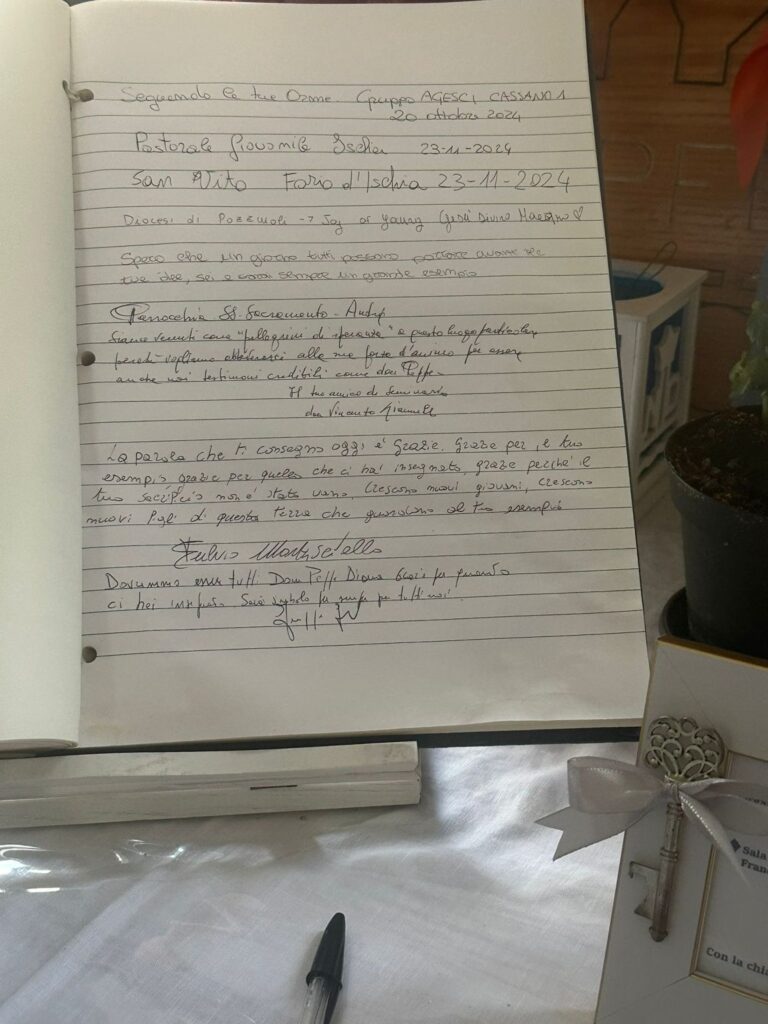 Seguendo le tue Orme. Gruppo AGESCI CASSANO 1
20 ottobre 2024
Pastorale Giovanile Ischia 23-11-2024
San Vito Forio d'Ischia 23-11-2024
Diocesi di Pozzuoli → Joy of Young (Gesù Divino Maestro ♡
Spero che un giorno tutti possano portare avanti le
tue idee, sei e sarai sempre un grande esempio
Parrocchia SS. Sacramento - Andria
Siamo venuti come "pellegrini di speranza" a questo luogo particolare
perché vogliamo alla tua forza d'animo per essere
anche noi testimoni credibili come don Peppe.
Il tuo amico di Seminario
don Vincenzo
La parola che ti consegno oggi è Grazie. Grazie per il tuo
esempio grazie per quello che ci hai insegnato, grazie perché il
tuo sacrificio non è stato vano, crescono nuovi giovani, crescono
nuovi figli di questa terra che guardano al tuo esempio
Fulvio Martusciello
Dovremmo essere tutti Don Peppe Diana Grazie per quanto
ci hai insegnato Sarai simbolo per sempre per tutti noi!
Sala
Fran
Con la chia